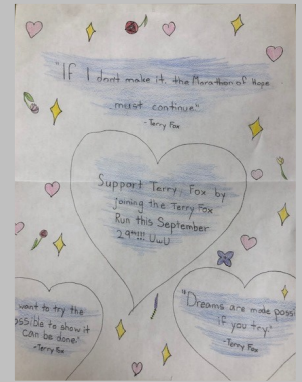 "If I don't make it, the Marathon of Hope
must continue."
-Terry Fox
Support Terry Fox by
joining the Terry Fox
Run this September
29th!!! UwU
want to try the
ossible to show it
can be done."
-Terry Fox
"Dreams are made possi
if you try."
-Terry Fox